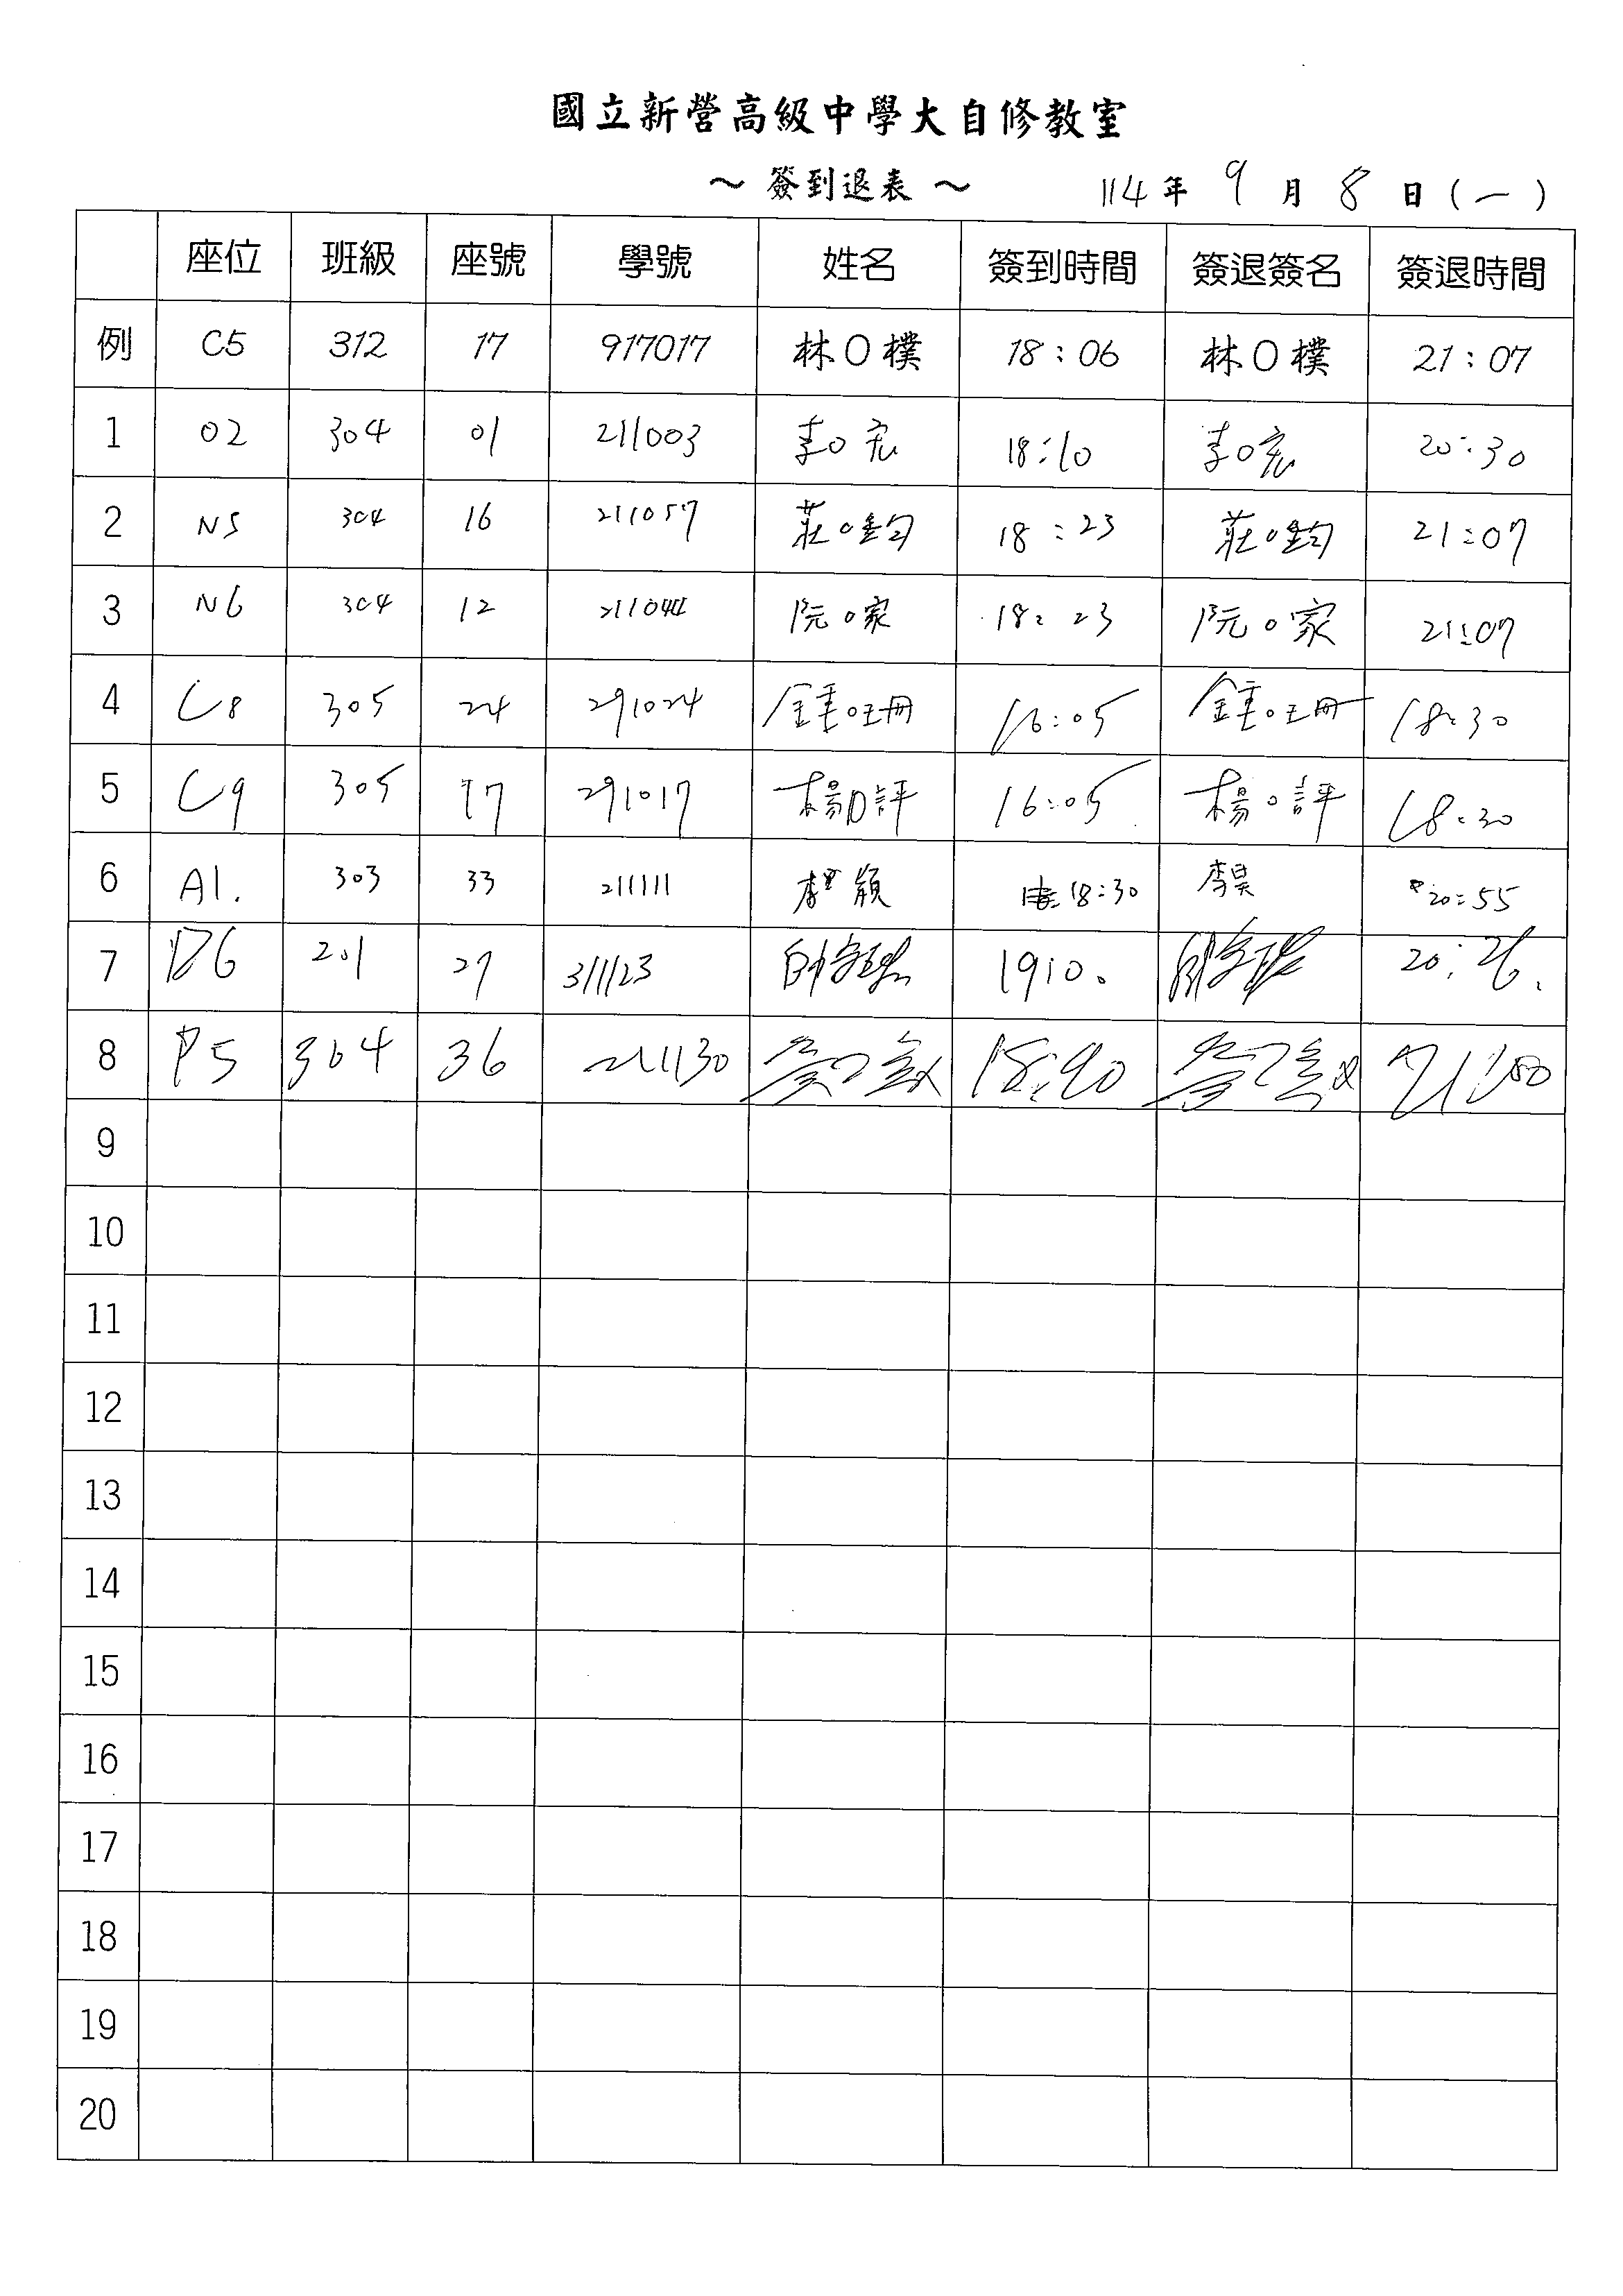 國立新營高級中學大自修教室
～ 簽到退表 ～ 114 年 9 月 8 日 ( 一 )
座位 班級 座號 學號 姓名 簽到時間 簽退簽名 簽退時間
例 C5 312 17 917017 林O樸 18：06 林O樸 21：07
1 02 304 01 211003 李O宏 18:10 李O宏 20:30
2 N5 304 16 211057 莊O鈞 18:23 莊O鈞 21:07
3 N6 304 12 211044 阮O家 18:23 阮O家 21:07
4 C8 305 24 291024 鍾O珊 16:05 鍾O珊 18:30
5 C9 305 17 291017 楊O評 16:05 楊O評 18:30
6 A1. 303 33 211111 18:30 20:55
7 D6 201 27 311123 1910. 20:26.
8 P5 304 36 211130
9
10
11
12
13
14
15
16
17
18
19
20